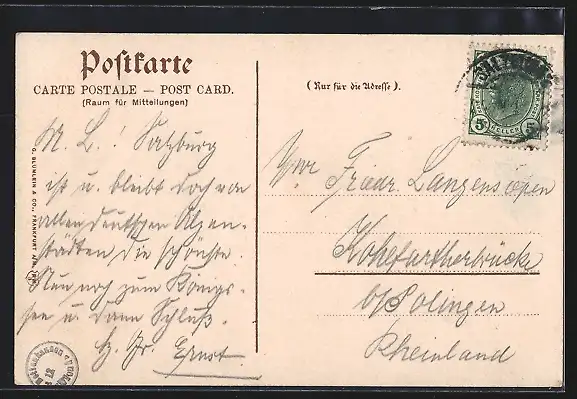 Postkarte
CARTE POSTALE — POST CARD.
(Raum für Mitteilungen)
(Nur für die Adresse).
M. L.! Salzburg
ist u. bleibt doch von
allen deutschen Alpen-
städten die schönste.
Nun noch zum Königs-
see u. dann Schluß.
Hz. Gr. Ernst.
Friedr. Langensiepen
Kohlfurtherbrücke
b/Solingen
Rheinland
O. BLÜMLEIN & CO., FRANKFURT A/M.
5 HELLER 5